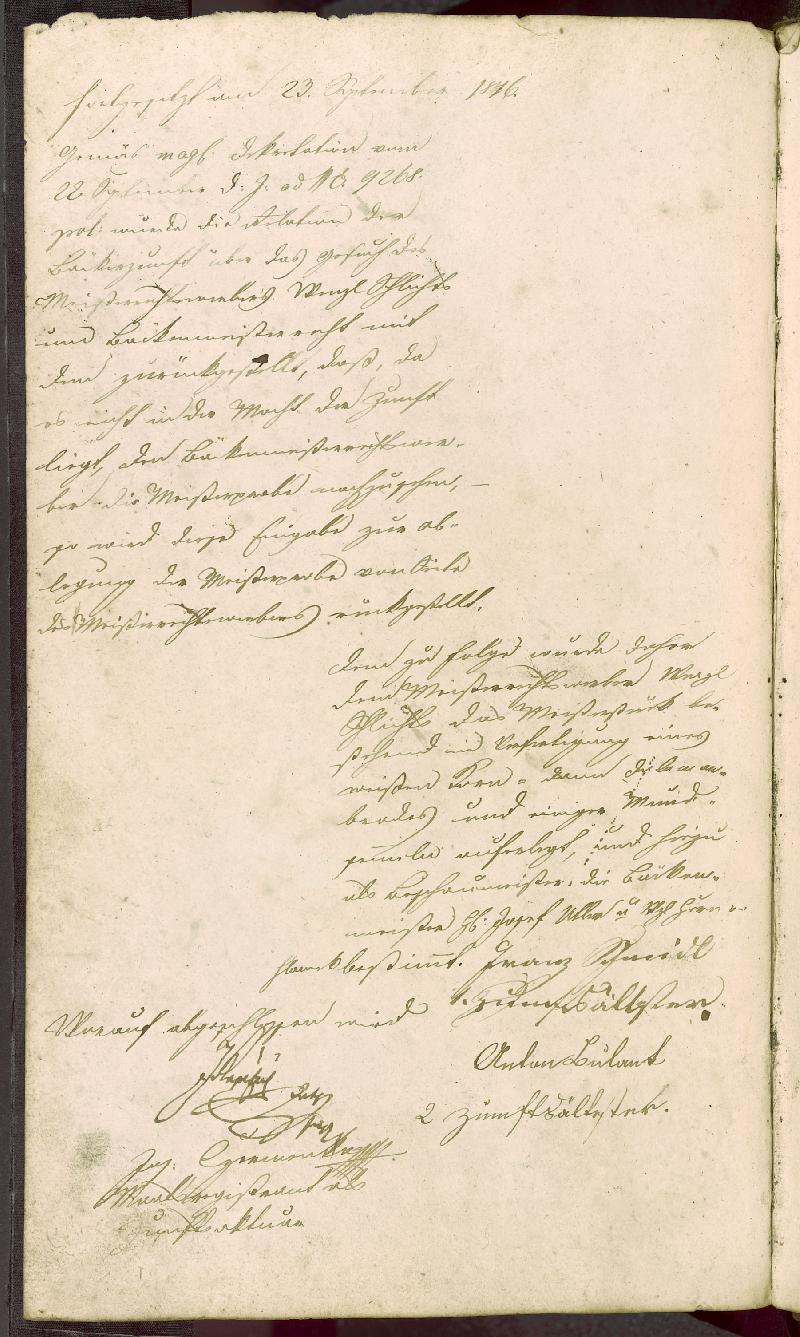 fortgesetzt am 23. September 1846.
Gemäs mags. Dekretation vom
22. September d: J: ad NC. 9268.
pol: wurde die Relation der
Bäkerzunft über das Gesuch des
Meisterrechtswerbers Wenzl Schlichts
um Bäkenmeisterrecht mit
dem zurückgestellt, daß, da
es nicht in der Macht der Zunft
liegt, den Bäkenmeisterrechtswer-
ber die Meisterprobe nachzusehen, –
so wird diese Eingabe zur ab-
legung der Meisterprobe von Seite
des Meisterrechtswerbers rückgestellt.
Dem zu Folge wurde daher
dem Meisterrechtswerber Wenzl
Schlicht das Meisterstück be-
stehend in Verfertigung eines
weißen Korn- dann
brodes und einiger Mund-
semeln auferlegt, und hiezu
als Beschaumeister die Bäcken-
meister H: Josef u
bestimmt. Franz Schmidl
1. Zunftsältester.
Worauf abgeschlossen wird
Anton Bulant
2 Zunftsältester.
Jos:
Magistratsregistrant als
Zunftsaktuar